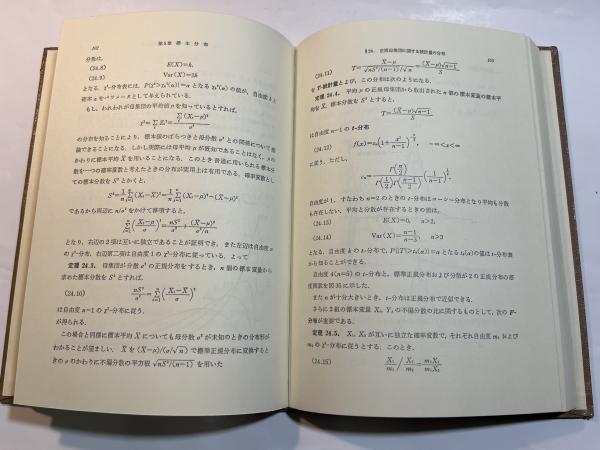 102 第5章 標本分布
分散は,
(24.8) E(X)=k,
(24.9) Var(X)=2k
となる. χ²-分布表には, P(χ²>χₖ²(α))=α となる χₖ²(α) の値が, 自由度 k と
確率 α をパラメータとして与えられている.
もし, われわれが母集団の平均値 μ を知っているとすれば,
χ²=∑Zᵢ²=∑(Xᵢ−μ)²/σ²
の分布を知ることにより, 標本値のばらつきと母分散 σ² との関係について推
論できることになる. しかし実際には母平均 μ が既知であることはなく, μ の
かわりに標本平均 X̄ を用いることになる. このとき普通に用いられる標本分
散を一つの確率変数と考えたときの分布が実用上は有用である. 確率変数とし
ての標本分散を S² とかくと,
S²=1/n ∑(Xᵢ−X̄)²=1/n ∑(Xᵢ−μ)²−(X̄−μ)²,
であるから両辺に n/σ² をかけて移項すると,
∑((Xᵢ−μ)/σ)²=nS²/σ²+(X̄−μ)²/(σ²/n)
となり, 右辺の2項は互いに独立であることが証明でき, また左辺は自由度 n
の χ²-分布, 右辺第二項は自由度 1 の χ²-分布に従っている. よって
定理 24.3. 母集団が分散 σ² の正規分布をするとき, n 個の標本変量から
求めた標本分散を S² とすれば,
(24.10) nS²/σ²=∑((Xᵢ−X̄)/σ)²
は自由度 n−1 の χ²-分布に従う.
が得られる.
この場合と同様に標本平均 X̄ についても母分散 σ² が未知のときの分布形が
わかることが望ましい. X̄ を (X̄−μ)/(σ/√n) で標準正規分布に変換すると
きの σ のかわりに不偏分散の平方根 √nS²/(n−1) を用いた
§24. 正規母集団に関する統計量の分布 103
(24.11) T=(X̄−μ)/(√nS²/(n−1)/√n)=(X̄−μ)√n−1/S
を T-統計量とよび, この分布は次のようになる.
定理 24.4. 平均 μ の正規母集団から取出された n 個の標本変量の標本平
均を X̄, 標本分散を S² とすると,
T=(X̄−μ)√n−1/S
は自由度 n−1 の t-分布
(24.12) f(x)=cₙ(1+x²/(n−1))^(−n/2), −∞<x<∞
に従う. ただし,
cₙ=Γ(n/2)/(Γ(1/2)Γ((n−1)/2))(1/(n−1))^(1/2),
自由度が1, すなわち n=2 のときの t-分布はコーシー分布となり平均も分散
も存在しない. 平均と分散が存在するときの値は,
(24.13) E(X)=0, n>2,
(24.14) Var(X)=(n−1)/(n−3), n>3
となる. 自由度 k の t-分布で, P(|T|>tₖ(α))=α となる tₖ(α) の値は t-分布表
から知ることができる.
自由度 4(n=5) の t-分布と, 標準正規分布および分散が2の正規分布の密
度関数を図35に示した.
また n が十分大きいとき, t-分布は正規分布で近似できる.
さらに2組の標本変量 Xᵢ, Yⱼ の不偏分散の比に関するものとして, 次の F-
分布が重要である.
定理 24.5. X₁, X₂ が互いに独立な確率変数で, それぞれ自由度 m₁ および
m₂ の χ²-分布に従うとする. このとき,
(24.15) X₁/m₁ / X₂/m₂ = m₂X₁/m₁X₂